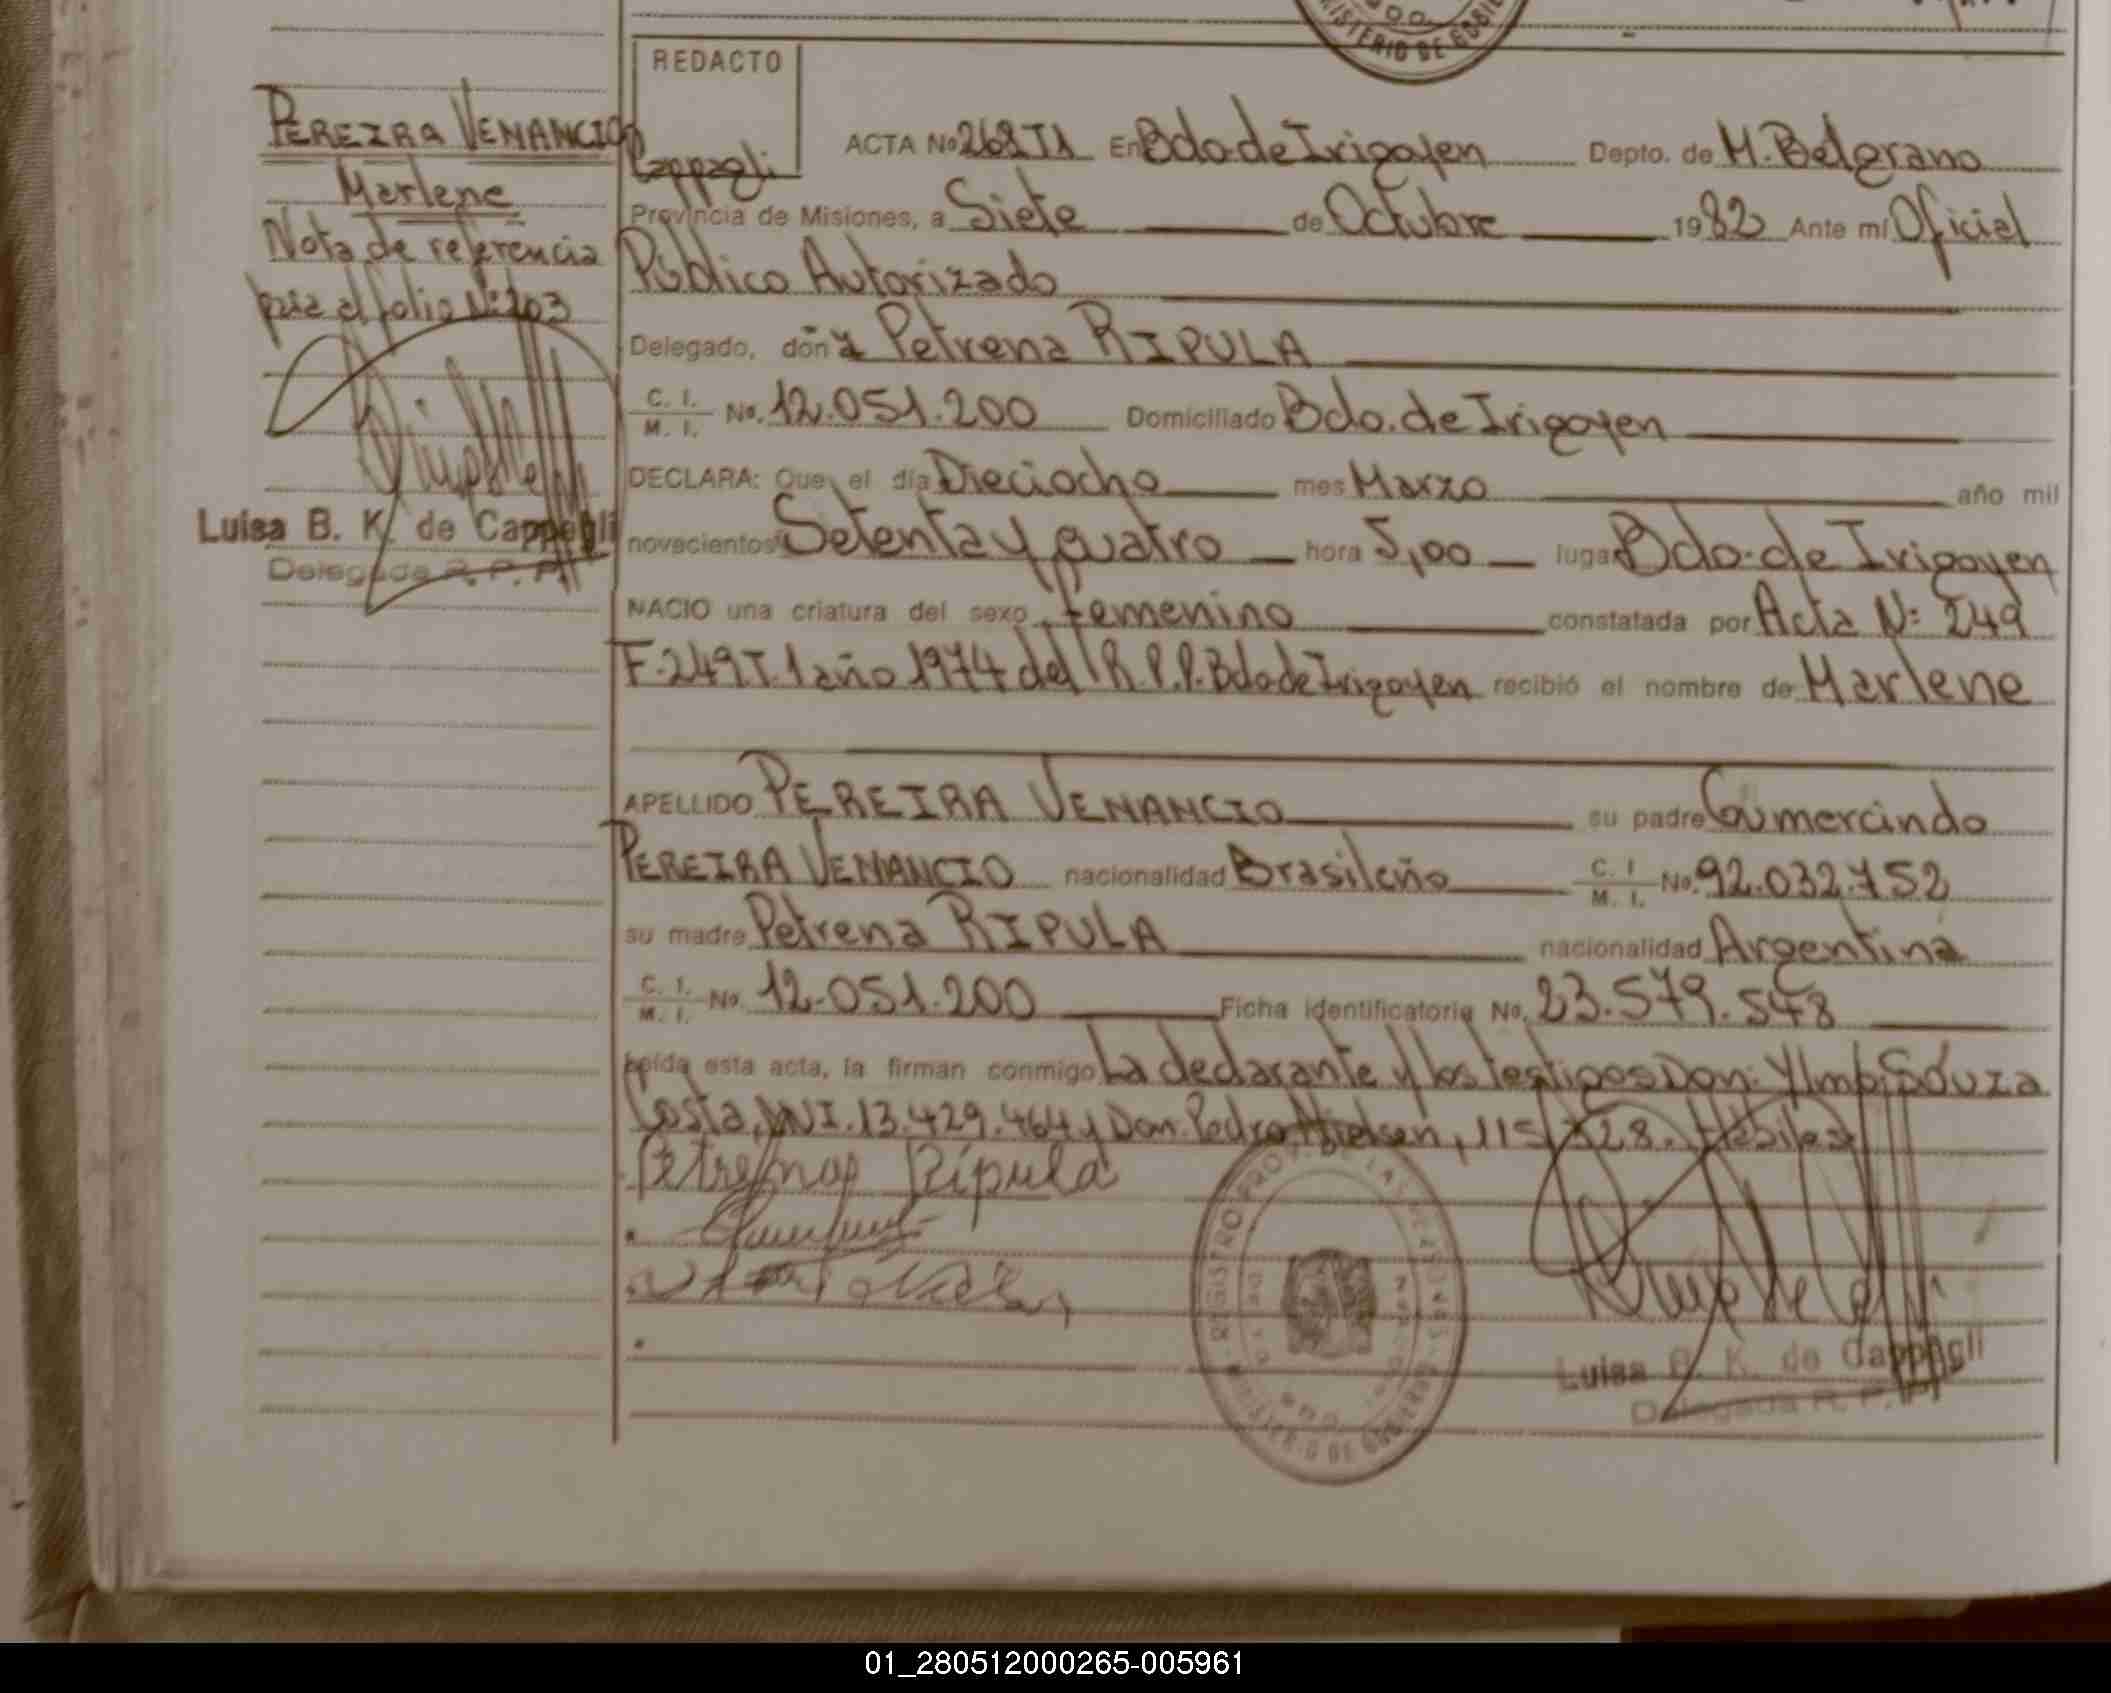 REDACTO
Cappagli
PEREIRA VENANCIO
Marlene
Nota de referencia
para el folio Nº 203
Luisa B. K. de Cappagli
Delegada R. P. P.
ACTA No 268 T1 En Bdo. de Irigoyen Depto. de M. Belgrano
Provincia de Misiones, a Siete de Octubre 1982 Ante mí Oficial
Público Autorizado
Delegado, doña Petrena RIPULA
C. I. M. I. No. 12.051.200 Domiciliado Bdo. de Irigoyen
DECLARA: Que el día Dieciocho mes Marzo año mil
novecientos Setenta y cuatro hora 5,00 lugar Bdo. de Irigoyen
NACIO una criatura del sexo femenino constatada por Acta Nº 249
F. 249 T. 1 año 1974 del R.P.P. Bdo de Irigoyen recibió el nombre de Marlene
APELLIDO PEREIRA VENANCIO su padre Gumercindo
PEREIRA VENANCIO nacionalidad Brasileño C. I M. I. No. 92.032.752
su madre Petrena RIPULA nacionalidad Argentina
C. I. M. I. No. 12.051.200 Ficha identificatoria No. 23.579.548
Leída esta acta, la firman conmigo La declarante y los testigos Don. Souza
Costa, DNI. 13.429.464 y Don. Pedro Hábiles
Petrena Ripula
REGISTRO PROV. DE LAS PERSONAS
MINISTERIO DE GOBIERNO
Luisa B. K. de Cappagli
Delegada R. P. P.
01_280512000265-005961